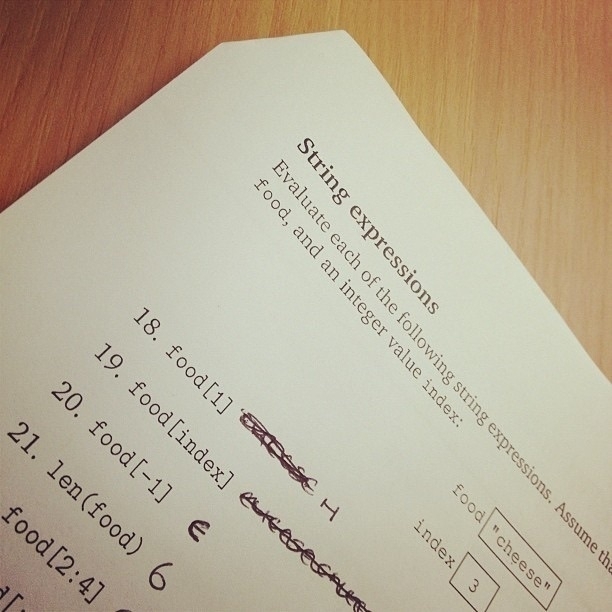 String expressions
Evaluate each of the following string expressions. Assume tha
food, and an integer value index:
food "cheese"
index 3
18. food[1] H
19. food[index]
20. food[-1] e
21. len(food) 6
food[2:4]